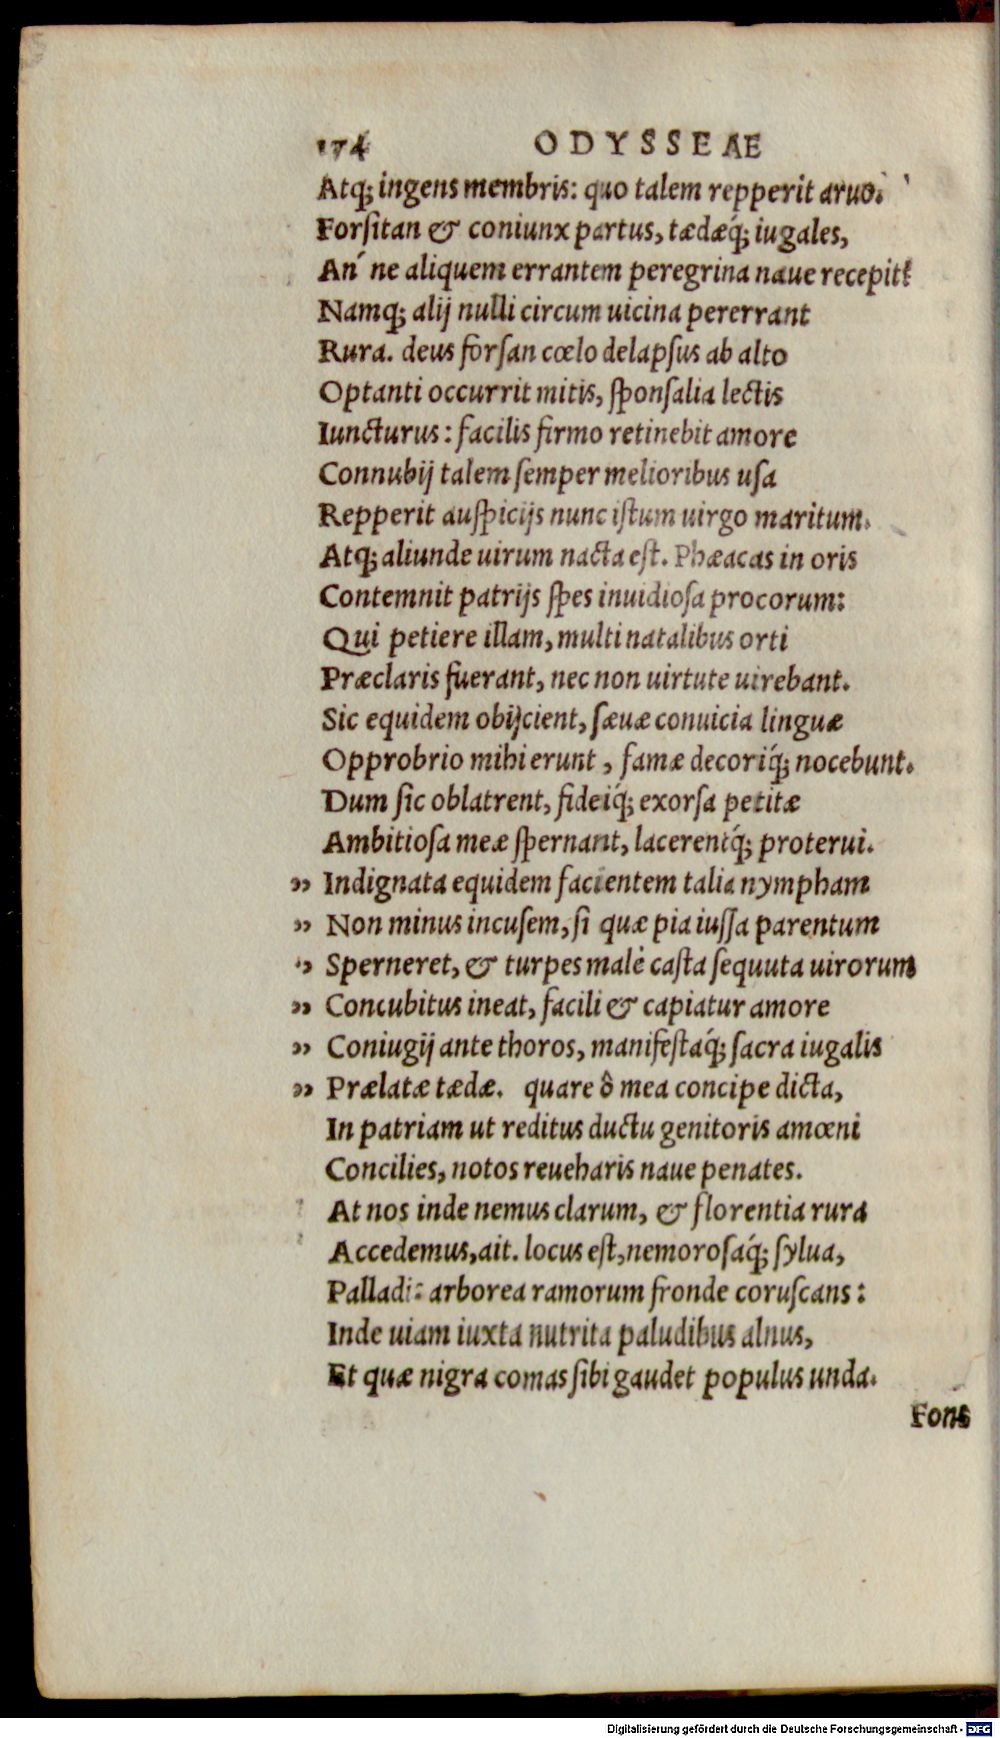 174 ODYSSEAE
Atq; ingens membris: quo talem repperit aruo.
Forſitan & coniunx partus, tædæq́; iugales,
An' ne aliquem errantem peregrina naue recepit?
Namq; alij nulli circum uicina pererrant
Rura. deus forſan cœlo delapſus ab alto
Optanti occurrit mitis, ſponſalia lectis
Iuncturus: facilis firmo retinebit amore
Connubij talem ſemper melioribus uſa
Repperit auſpicijs nunc iſtum uirgo maritum.
Atq; aliunde uirum nacta eſt. Phæacas in oris
Contemnit patrijs ſpes inuidioſa procorum:
Qui petiere illam, multi natalibus orti
Præclaris fuerant, nec non uirtute uirebant.
Sic equidem obijcient, ſæuæ conuicia linguæ
Opprobrio mihi erunt, famæ decoriq́; nocebunt.
Dum ſic oblatrent, fideiq́; exorſa petitæ
Ambitioſa meæ ſpernant, lacerentq́; proterui.
" Indignata equidem facientem talia nympham
" Non minus incuſem, ſi quæ pia iuſſa parentum
" Sperneret, & turpes malè caſta ſequuta uirorum
" Concubitus ineat, facili & capiatur amore
" Coniugij ante thoros, manifeſtaq́; ſacra iugalis
" Prælatæ tædæ. quare ô mea concipe dicta,
In patriam ut reditus ductu genitoris amœni
Concilies, notos reueharis naue penates.
At nos inde nemus clarum, & florentia rura
Accedemus, ait. locus eſt, nemoroſaq́; ſylua,
Palladis arborea ramorum fronde coruſcans:
Inde uiam iuxta nutrita paludibus alnus,
Et quæ nigra comas ſibi gaudet populus unda.
Fons
Digitalisierung gefördert durch die Deutsche Forschungsgemeinschaft - DFG